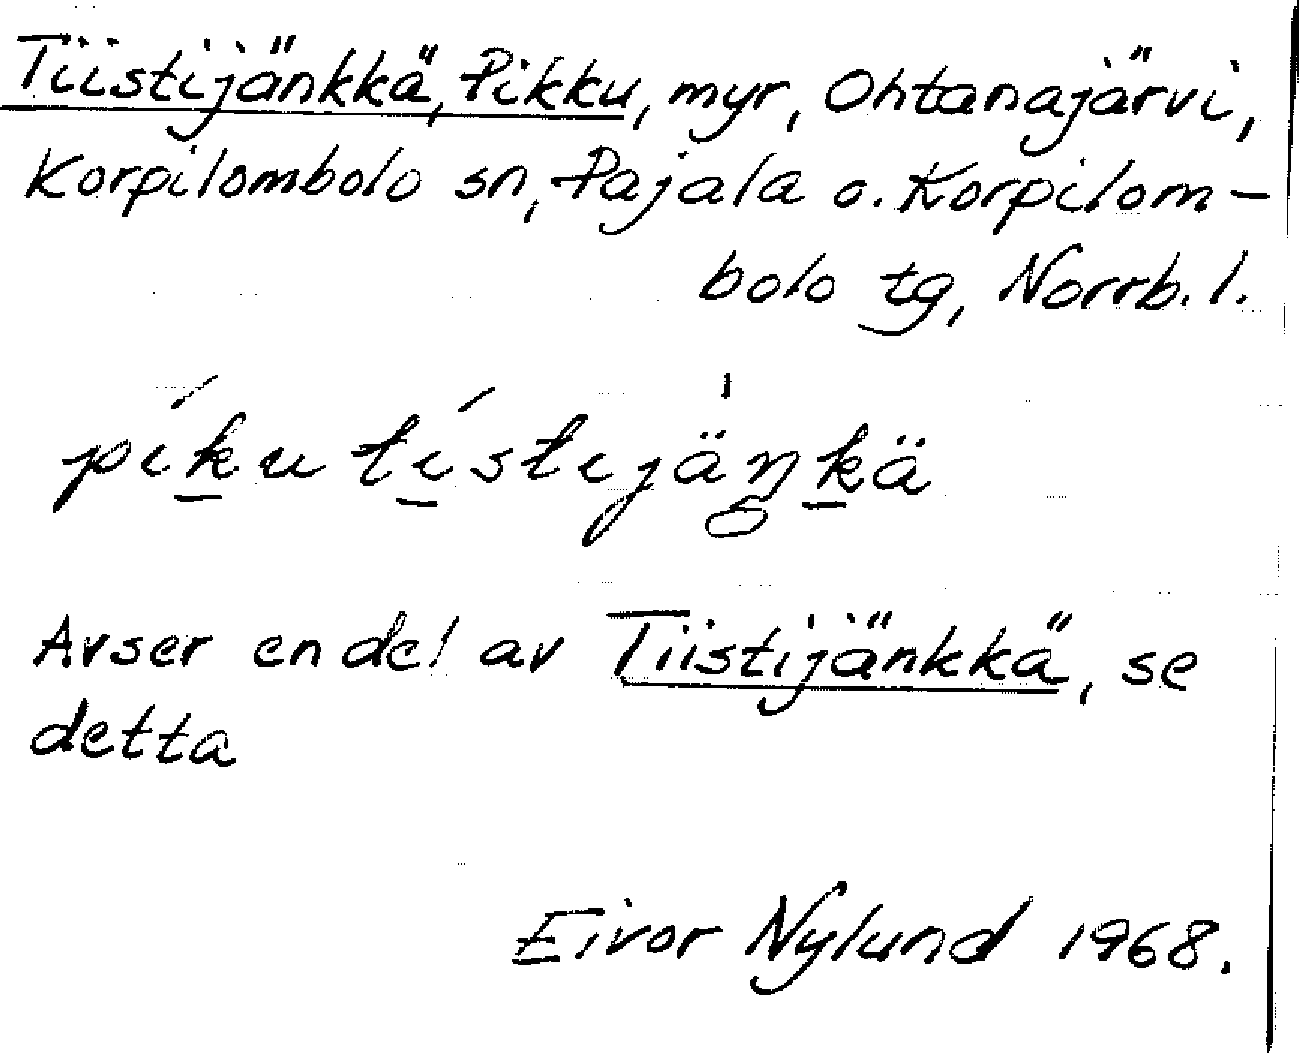 Tiistijänkkä, Pikku, myr, Ohtanajärvi,
Korpilombolo sn, Pajala o. Korpilom-
bolo tg, Norrb. l.
píḵu tí̱stijäŋḵä
Avser en del av Tiistijänkkä, se
detta
Eivor Nylund 1968.